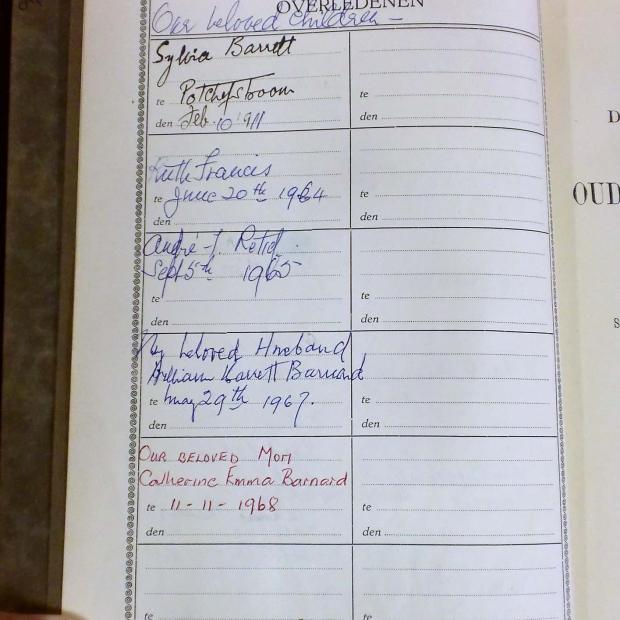 OVERLEDENEN
Our beloved Children —
Sylvia Barrett
te Potchefstroom
te
den Feb. 10 1911
den
Ruth Francis
te June 20th 1964
te
den
den
André J. Retief.
Sept 5th 1965
te
te
den
den
My beloved Husband
William Barrett Barnard
te May 29th 1967.
te
den
den
OUR BELOVED MOM
Catherine Emma Barnard
te 11-11-1968
te
den
den
te
te
D
OUD
S